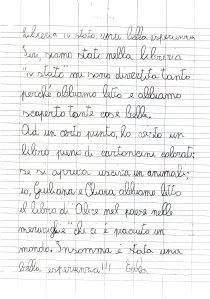 libreria iv stato una bella esperienza
Ieri, siamo stati nella libreria
"iv stato" mi sono divertita tanto
perché abbiamo letto e abbiamo
scoperto tante cose belle.
Ad un certo punto, ho visto un
libro pieno di cartoncini colorati;
se si apriva usciva un animale;
io, Giuliana e Chiara abbiamo letto
il libro di "Alice nel paese nelle
meraviglie" che ci è piaciuto un
mondo. Insomma è stata una
bella esperienza!!!